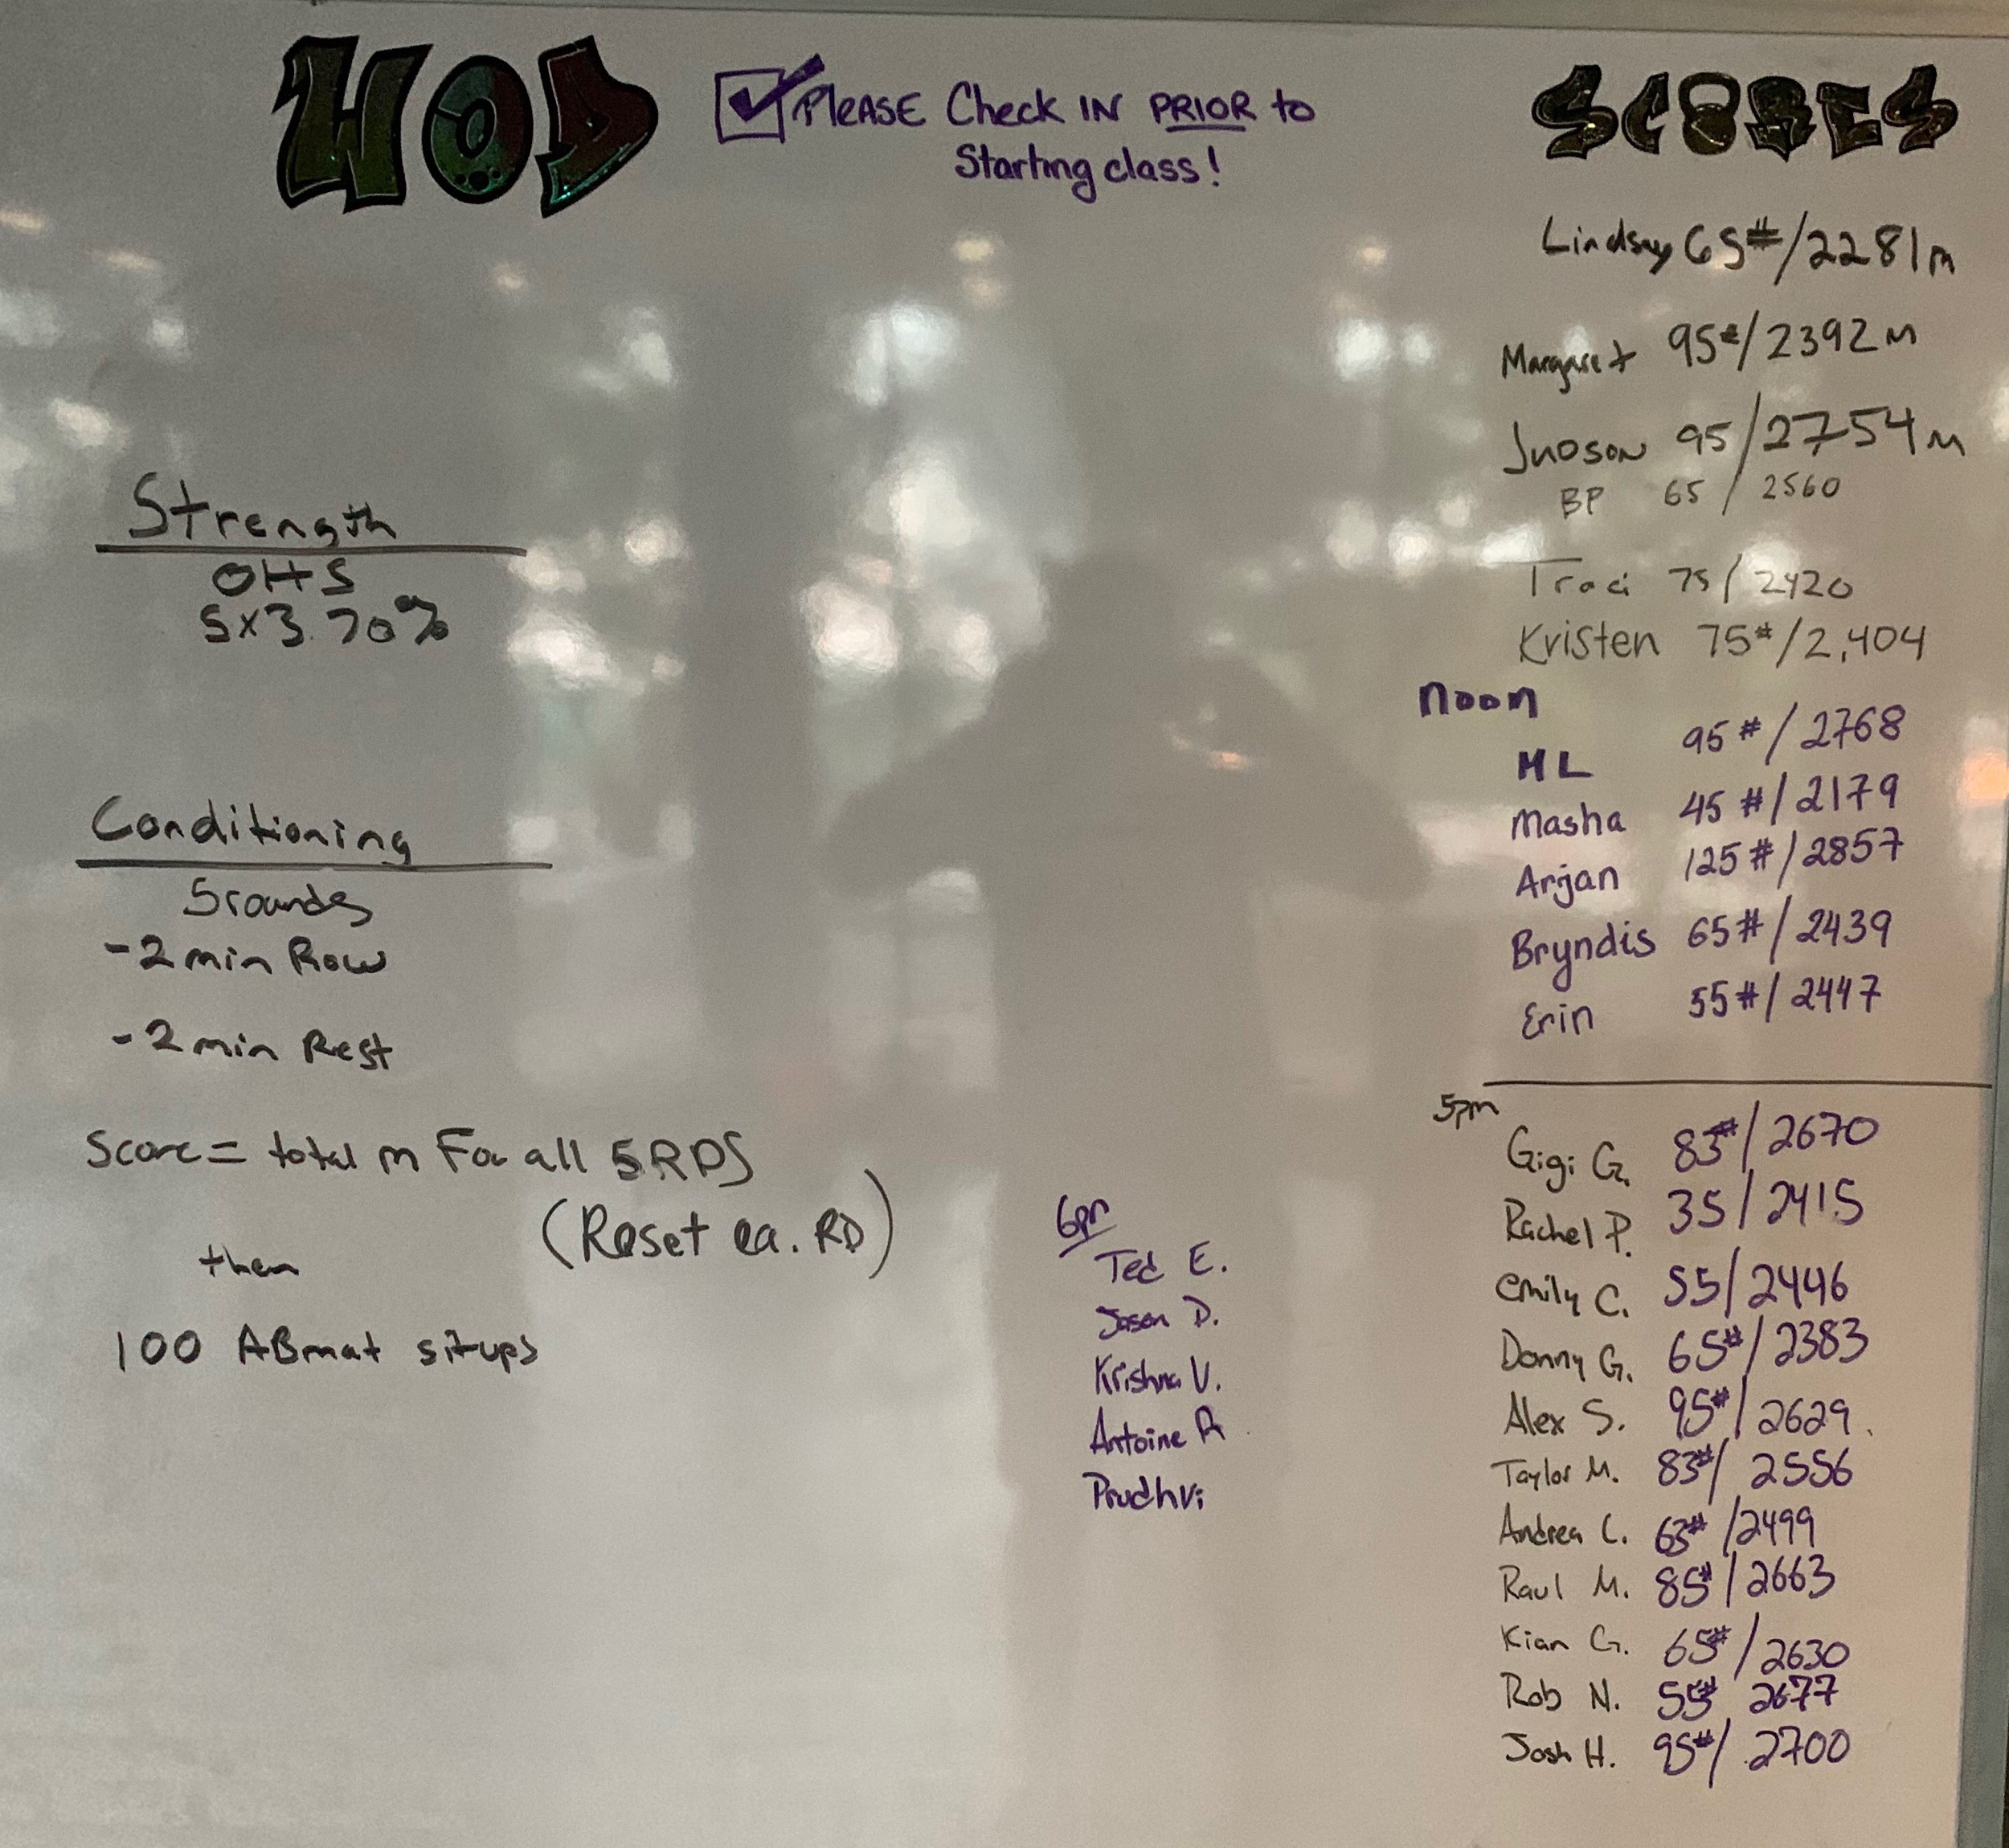 WOD
PLEASE Check IN PRIOR to
Starting class!
Strength
OHS
5x3 70%
Conditioning
5 rounds
-2 min Row
-2 min Rest
Score = total m For all 5 RDS
(Reset ea. RD)
then
100 ABmat situps
6pm
Ted E.
Jason D.
Krishna V.
Antoine R
Prudhvi
SCORES
Lindsay 65#/2281m
Margaret 95#/2392m
Judson 95/2754m
BP 65/2560
Traci 75/2420
Kristen 75#/2,404
noon
ML 95#/2768
Masha 45#/2179
Arjan 125#/2857
Bryndis 65#/2439
Erin 55#/2447
5pm
Gigi G. 83#/2670
Rachel P. 35/2415
emily C. 55/2446
Donny G. 65#/2383
Alex S. 95#/2629
Taylor M. 83#/2556
Andrea C. 63#/2499
Raul M. 85#/2663
Kian G. 65#/2630
Rob N. 55# 2677
Josh H. 95#/2700